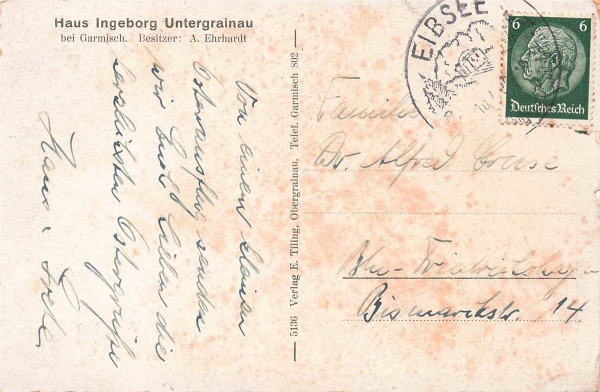 Haus Ingeborg Untergrainau
bei Garmisch. Besitzer: A. Ehrhardt
Von einem kleinen
Osterausflug senden
wir Euch Lieben die
herzlichsten Ostergrüße
Hans
5136 Verlag E. Tiling, Obergrainau. Telef. Garmisch 802
EIBSEE
6 6
Deutsches Reich
Familie
Dr. Alfred
Bismarckstr. 14